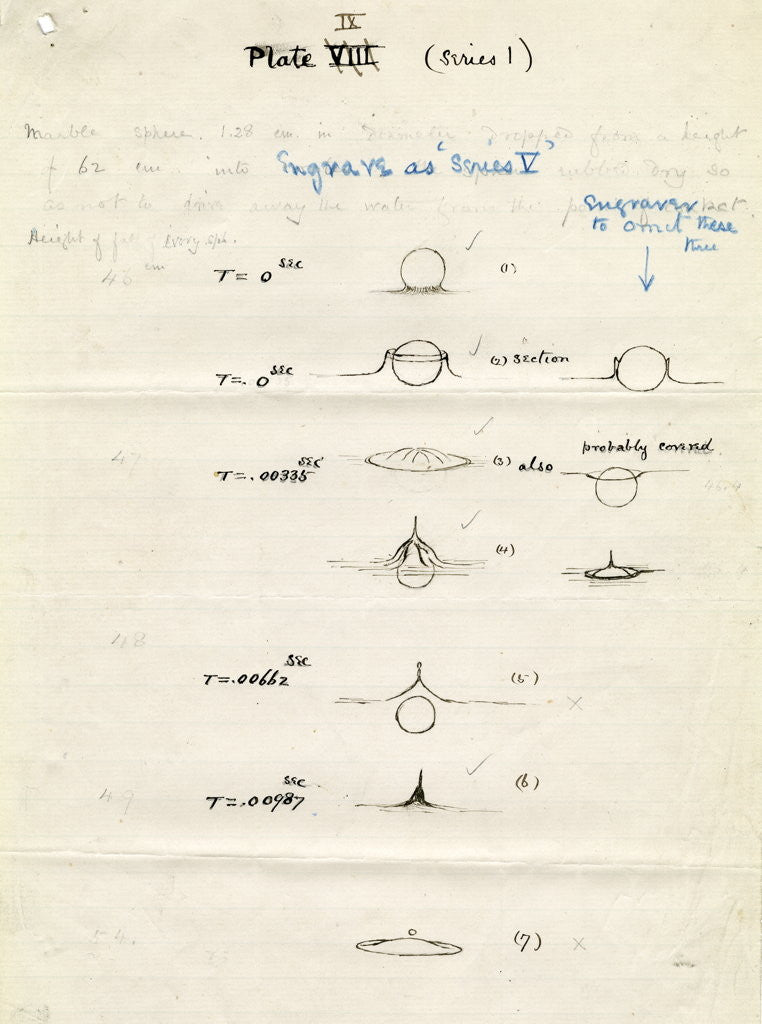 IX
Plate VIII (Series 1)
Marble sphere. 1.28 cm. in Diameter dropped from a height
of 62 cm. into rubbed dry so
Engrave as "Series V"
as not to drive away the water from the
Engraver
to omit these
three
Height of fall of Ivory sph.
46 cm
T = 0 sec (1)
T = 0 sec (2) Section
47 T = .00335 sec (3) also probably covered
(4)
48
T = .00662 sec (5) ×
49 T = .00987 sec (6)
54. (7) ×